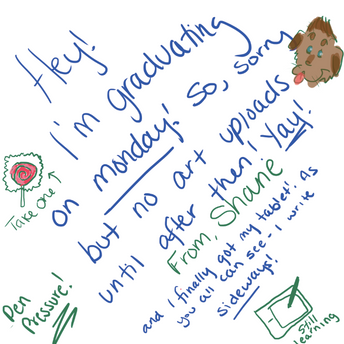 Hey!
I'm graduating
on monday! So, sorry
but no art uploads
until after then! Yay!
From, Shane
and I finally got my tablet! As
you all can see - I write
sideways!
Take one
Pen
Pressure!
Still
learning